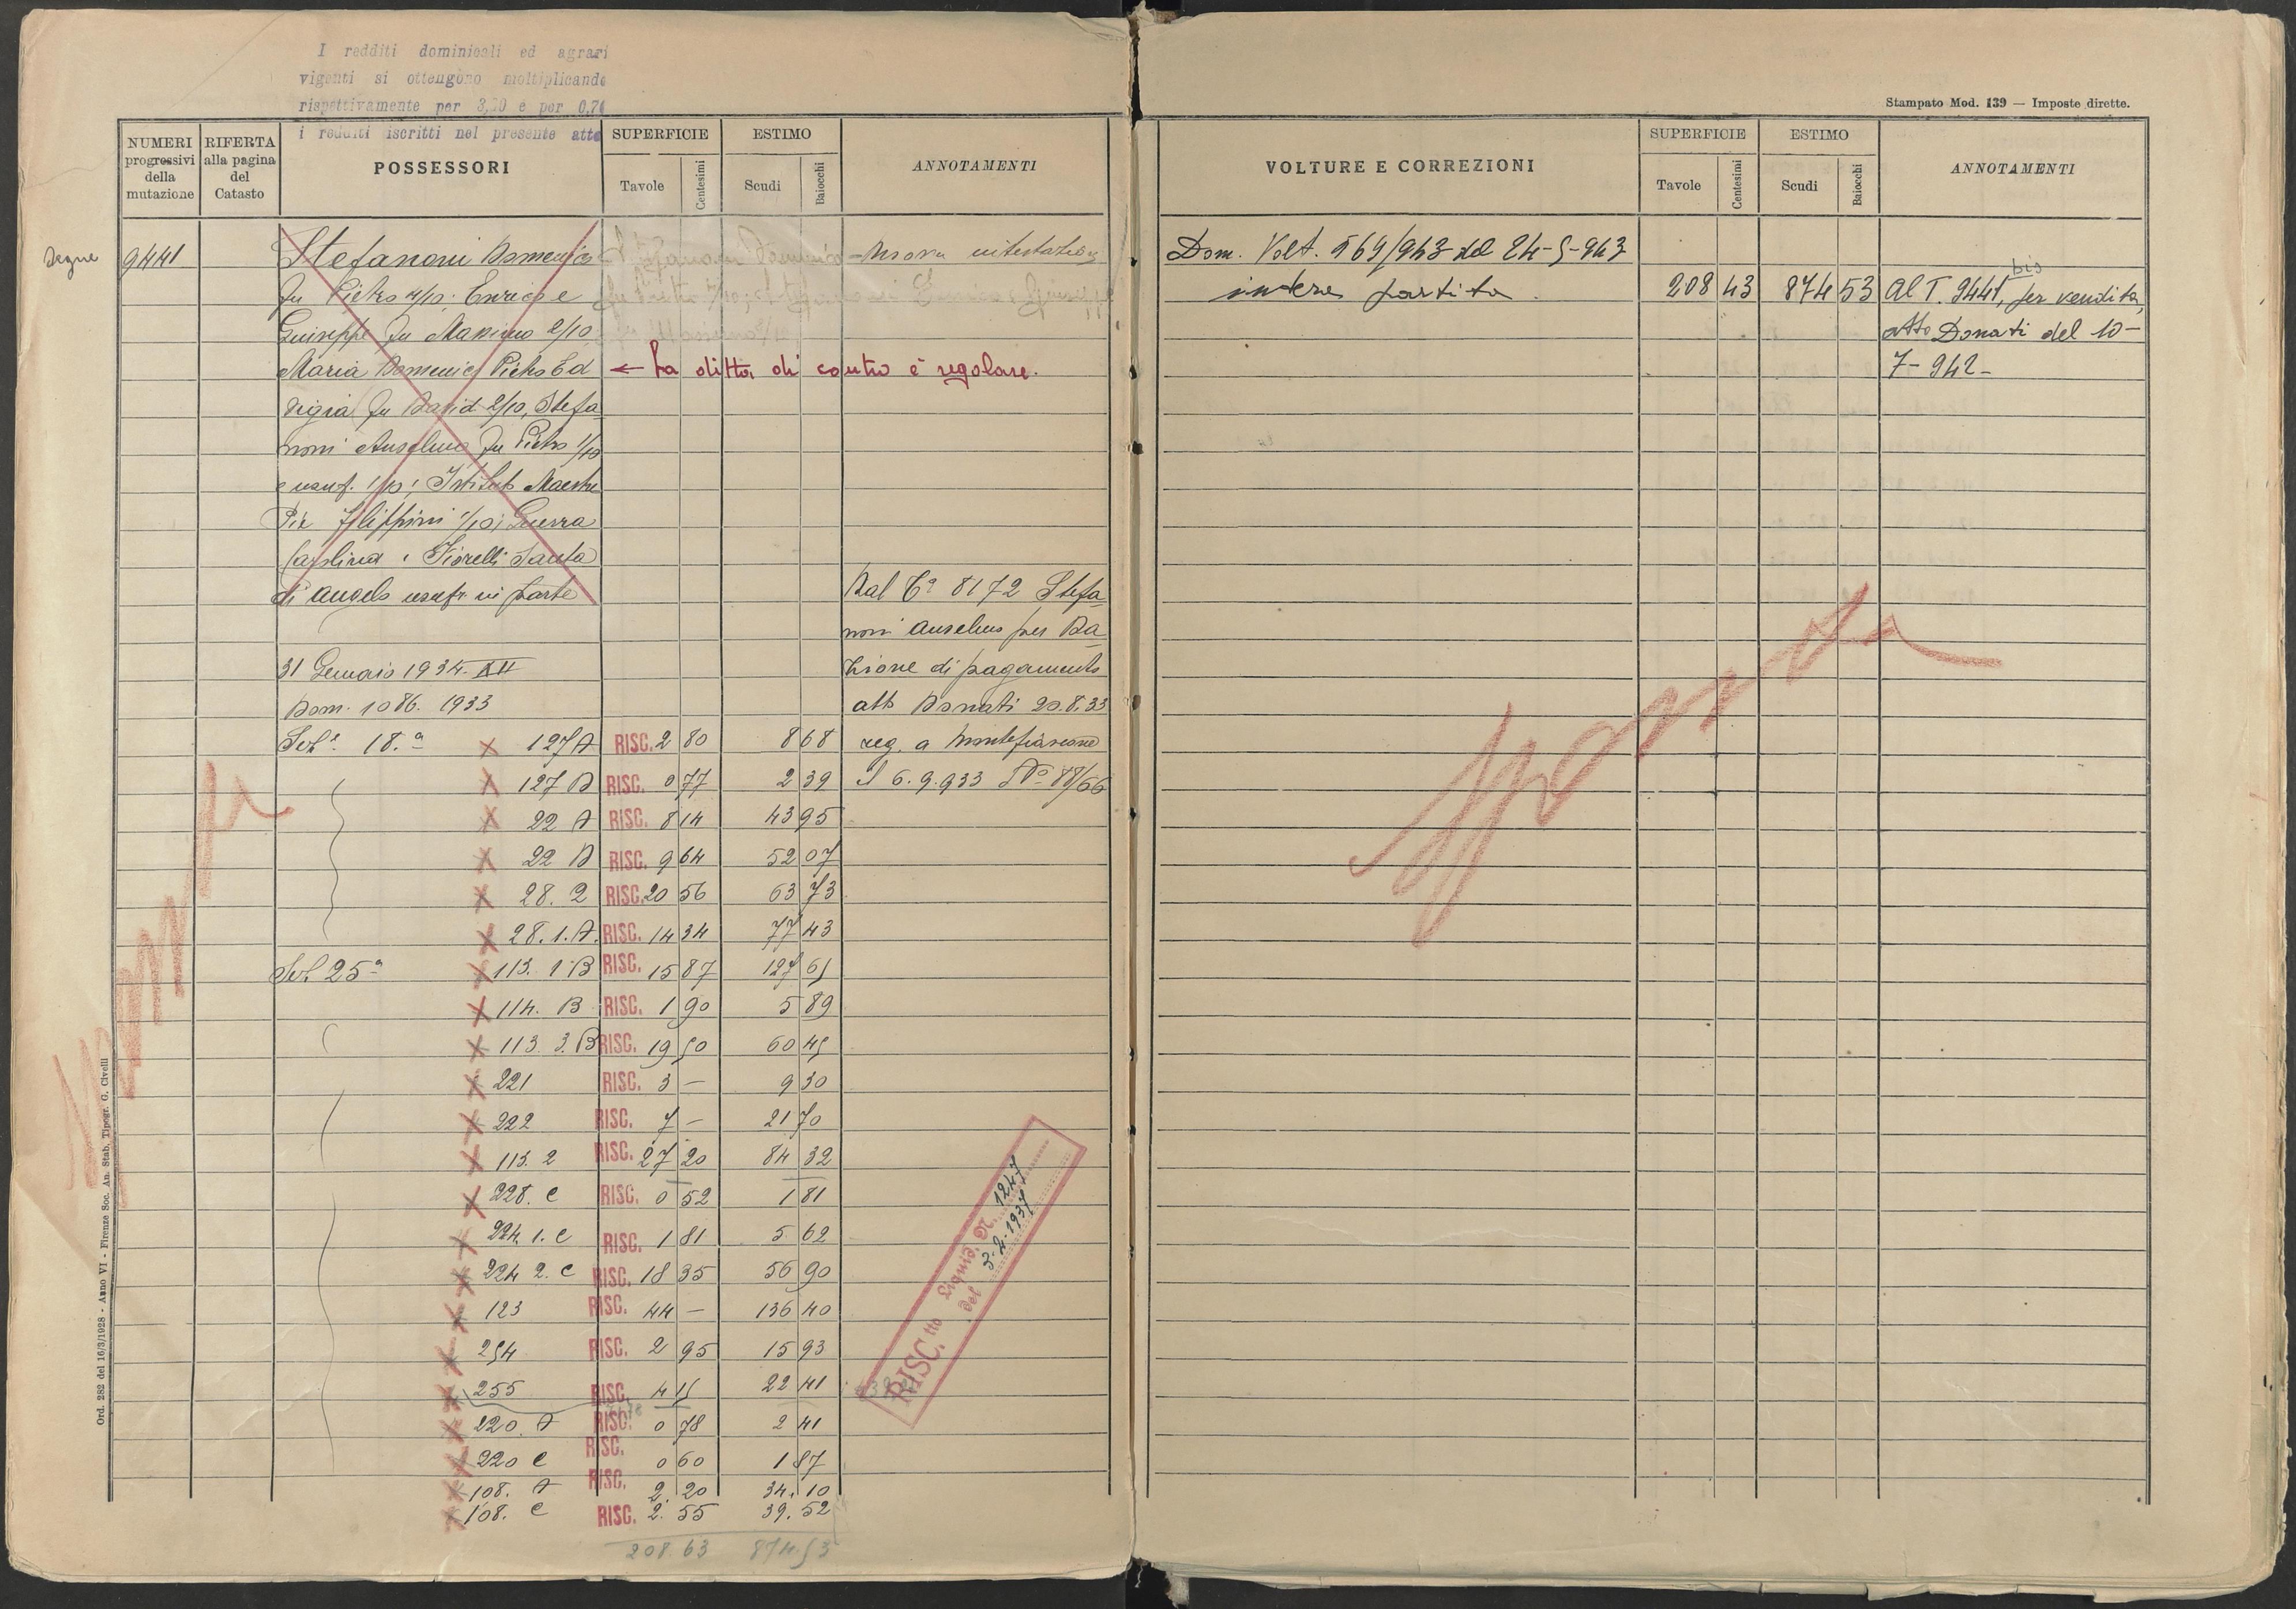 I redditi dominicali ed agrari
vigenti si ottengono moltiplicando
rispettivamente per 3,50 e per 0,70
i redditi iscritti nel presente atto
NUMERI progressivi della mutazione
RIFERTA alla pagina del Catasto
POSSESSORI
SUPERFICIE
Tavole
Centesimi
ESTIMO
Scudi
Baiocchi
ANNOTAMENTI
Segue 9441 Stefanoni Domenico
fu Pietro 4/10; Enrico e
Giuseppe fu Massimo 2/10,
Maria Domenica Pietro Ed
vigia fu David 2/10, Stefa
noni Anselmo fu Pietro 1/10
e usuf. 1/10; Istituto Maestre
Pie Filippini 1/10; Guerra
Carolina e Fiorelli Santa
di Angelo usufr. in parte
nuova intestazione
← La ditta di contro è regolare.
31 Gennaio 1934. XII
Dom. 1086. 1933
Dal T° 8172 Stefa
noni Anselmo per Da
zione di pagamento
atto Donati 20.8.33
reg. a Montefiascone
il 6.9.933 N° 88/66
Sez. 18.ª X 127 A RISC. 2 80 8 68
X 127 B RISC. 0 77 2 39
X 22 A RISC. 8 14 43 95
X 22 B RISC. 9 64 52 07
X 28. 2 RISC. 20 56 63 73
X 28. 1. A. RISC. 14 34 77 43
Sez. 25ª X 113. 1 B RISC. 15 87 127 65
X 114. B RISC. 1 90 5 89
X 113 3. B RISC. 19 50 60 45
X 221 RISC. 3 — 9 30
X 222 RISC. 7 — 21 70
X 113. 2 RISC. 27 20 84 32
X 228. C RISC. 0 52 1 81
X 224. 1. C RISC. 1 81 5 62
X 224 2. C RISC. 18 35 56 90
X 123 RISC. 44 — 136 40
X 254 RISC. 2 95 15 93
X 255 RISC. 4 15 22 41
X 220. A RISC. 0 78 2 41
X 220 C RISC. 0 60 1 87
X 108. A RISC. 2. 20 34. 10
X 108. C RISC. 2. 55 39. 52
208. 63 874.53
RISC.tto Liquid. N. 1247
del 3.4.1937
Ord. 282 del 16/3/1928 - Anno VI - Firenze Soc. An. Stab. Tipogr. G. Civelli
Stampato Mod. 139 — Imposte dirette.
VOLTURE E CORREZIONI
SUPERFICIE
Tavole
Centesimi
ESTIMO
Scudi
Baiocchi
ANNOTAMENTI
Dom. Volt. 569/943 del 24-5-943
intera partita 208 43 874 53 Al T. 9441 bis, per vendita,
atto Donati del 10-
7-942-